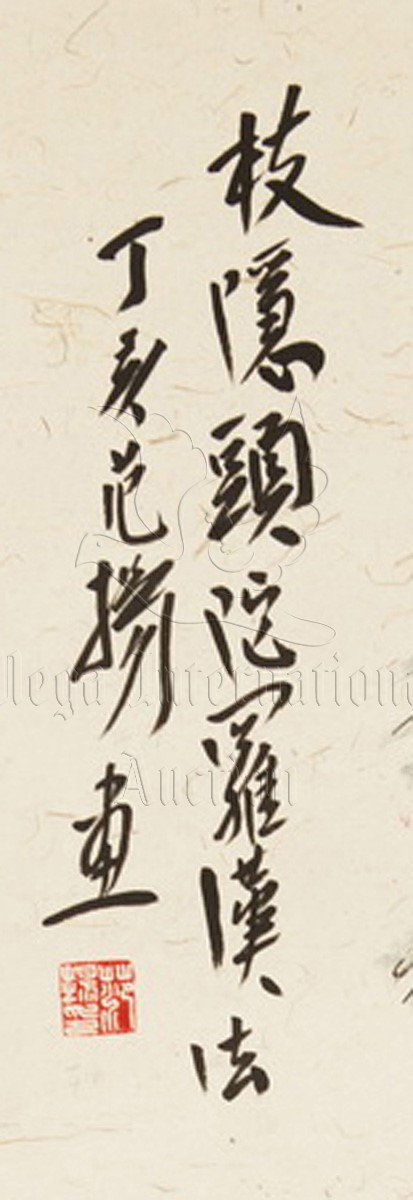 枝隱頭陀羅漢法
丁亥范揚畫
International
Auction